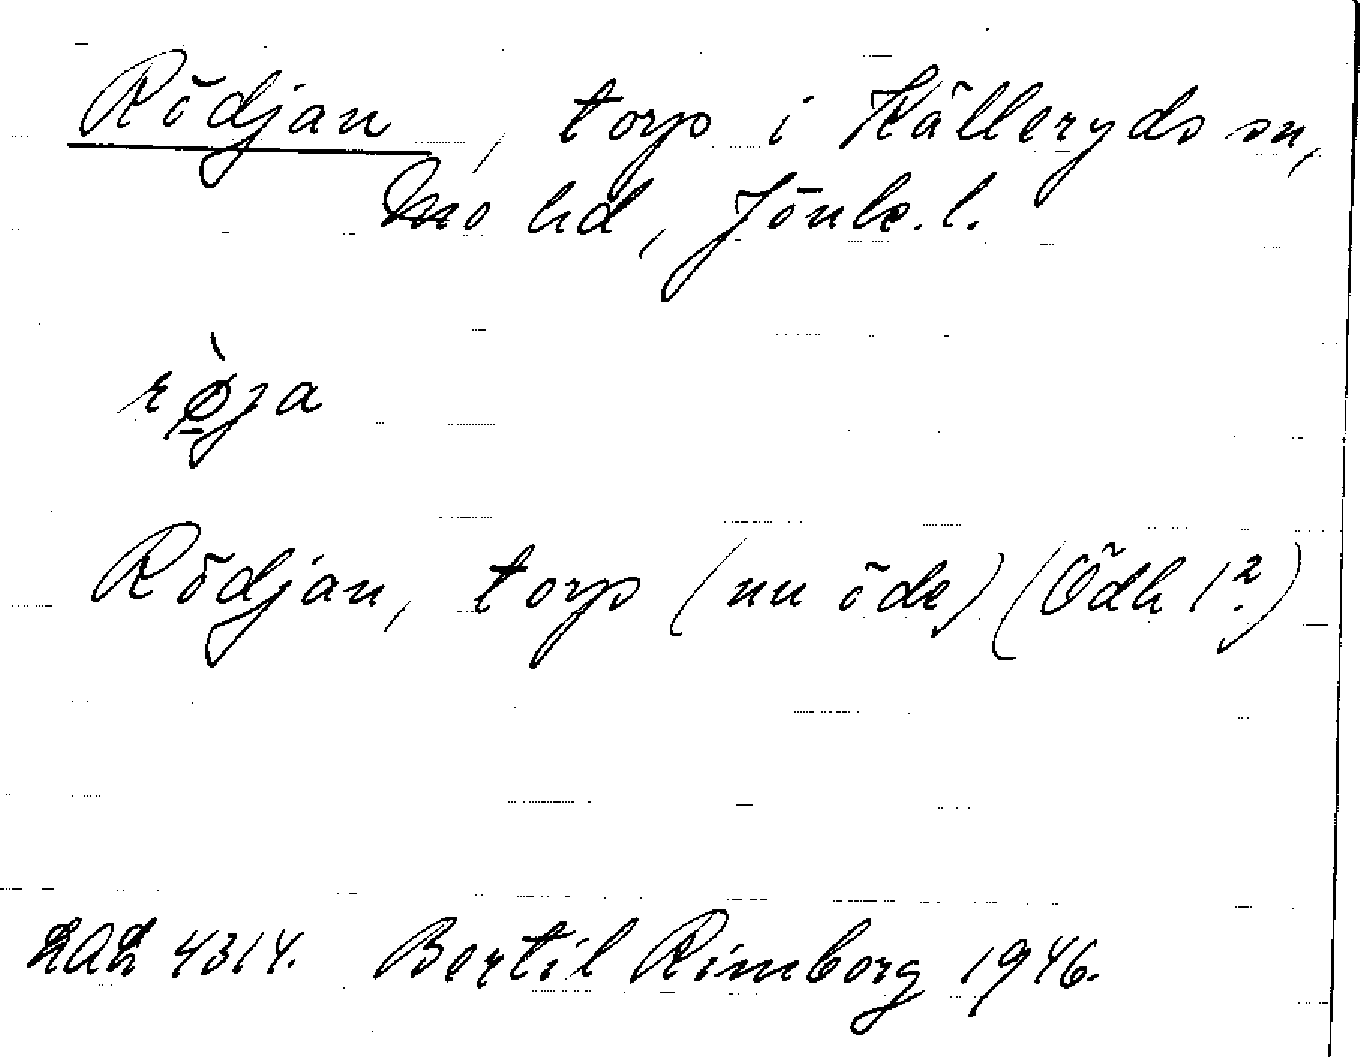 Rödjan, torp i Kålleryds sn,
Mo hd, Jönk. l.
rø̀ja
Rödjan, torp (nu öde) (Ödh 1?)
LAL 4314. Bertil Rimborg 1946.